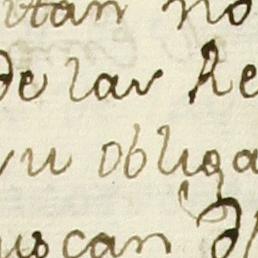 itan no
de las Re
su obliga
uscan